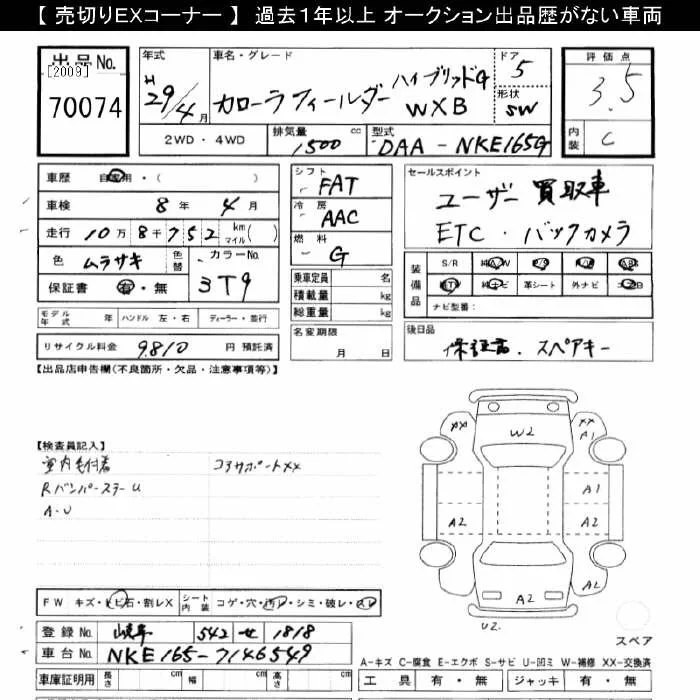 【 売切りEXコーナー 】 過去1年以上 オークション出品歴がない車両
出品No.
[2009]
70074
年式 H 29/4月
車名・グレード カローラフィールダー ハイブリッドG WXB
ドア 5
形状 SW
評価点 3.5
内装 C
2WD・4WD
排気量 1500 cc
型式 DAA-NKE165G
車歴 自家用・( )
車検 8年 4月
走行 10万8千752 km マイル( )
色 ムラサキ 色替
カラーNo. 3T9
保証書 有・無
シフト FAT
冷房 AAC
燃料 G
乗車定員 名
積載量 kg
総重量 kg
セールスポイント
ユーザー買取車
ETC・バックカメラ
装備品
S/R 純A/W P/S P/W ABS
純TV 純ナビ 革シート 外ナビ エアB
ナビ型番:
モデル年式 年 ハンドル 左・右 ディーラー・並行
名変期限 月 日
後日品
保証書.スペアキー
リサイクル料金 9,810 円 預託済
【出品店申告欄(不良箇所・欠品・注意事項等)】
【検査員記入】
室内毛付着 コアサポートXX
Rバンパーステー U
A・U
W2
XX
XX
A1
A1
A2
A2
A2
A2
U2.
スペア
FW キズ・ヒビ石・割レX
シート内装 コゲ・穴・汚レ・シミ・破レ・スレ
登録No. 岐阜 542 せ 1818
車台No. NKE165-7146549
車庫証明用 長さ cm 幅 cm 高さ cm
A-キズ C-腐食 E-エクボ S-サビ U-凹ミ W-補修 XX-交換済
工具 有・無 ジャッキ 有・無